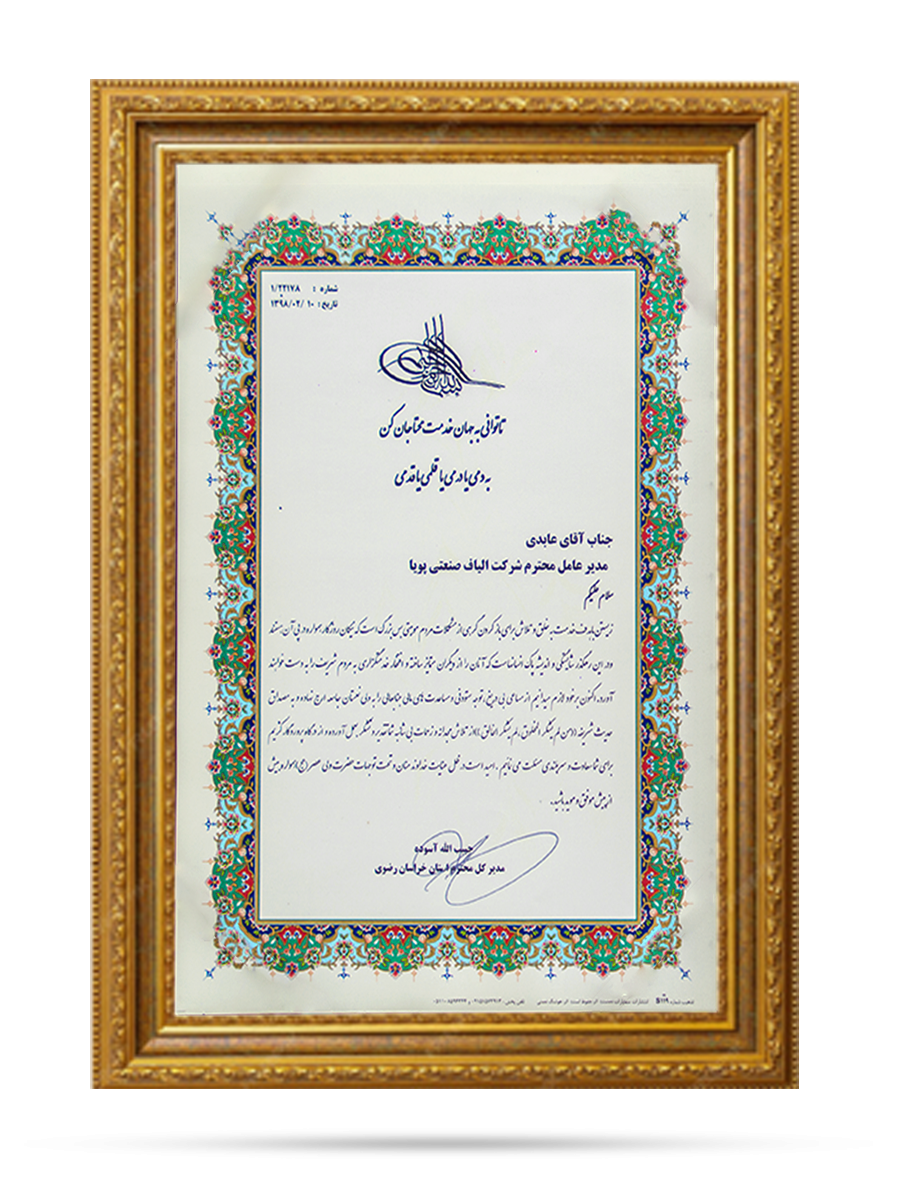 شماره : ۱/۲۲۱۷۸
تاریخ: ۱۳۹۸/۰۲/۱۰
تا توانی به جهان خدمت محتاجان کن
به دمی یا درمی یا قلمی یا قدمی
جناب آقای عابدی
مدیر عامل محترم شرکت الیاف صنعتی پویا
سلام علیکم
زیستن با هدف خدمت به خلق و تلاش برای باز کردن گرهی از مشکلات مردم موهبتی بس بزرگ است که نیکان روزگار همواره در پی آن هستند
و در این رهگذر شایستگی و اندیشه پاک انسانهاست که آنان را از دیگران متمایز ساخته و افتخار خدمتگزاری به مردم شریف را به دست خواهند
آورد. اکنون بر خود لازم میدانیم از مساعی بی دریغ، توجه ستودنی و مساعدت های مالی جنابعالی را به ولی نعمتان جامعه ارج نهاده و به مصداق
حدیث شریفه ((من لم یشکر المخلوق، لم یشکر الخالق)) از تلاش مجدانه و زحمات بی شائبه شما تقدیر و تشکر بعمل آورده و از درگاه پروردگار کریم
برای شما سعادت و سربلندی مسئلت می نمائیم . امید است در ظل عنایات خداوند منان و تحت توجهات حضرت ولی عصر (عج) همواره بیش
از پیش موفق و موید باشید.
حبیب الله آسوده
مدیر کل محترم استان خراسان رضوی